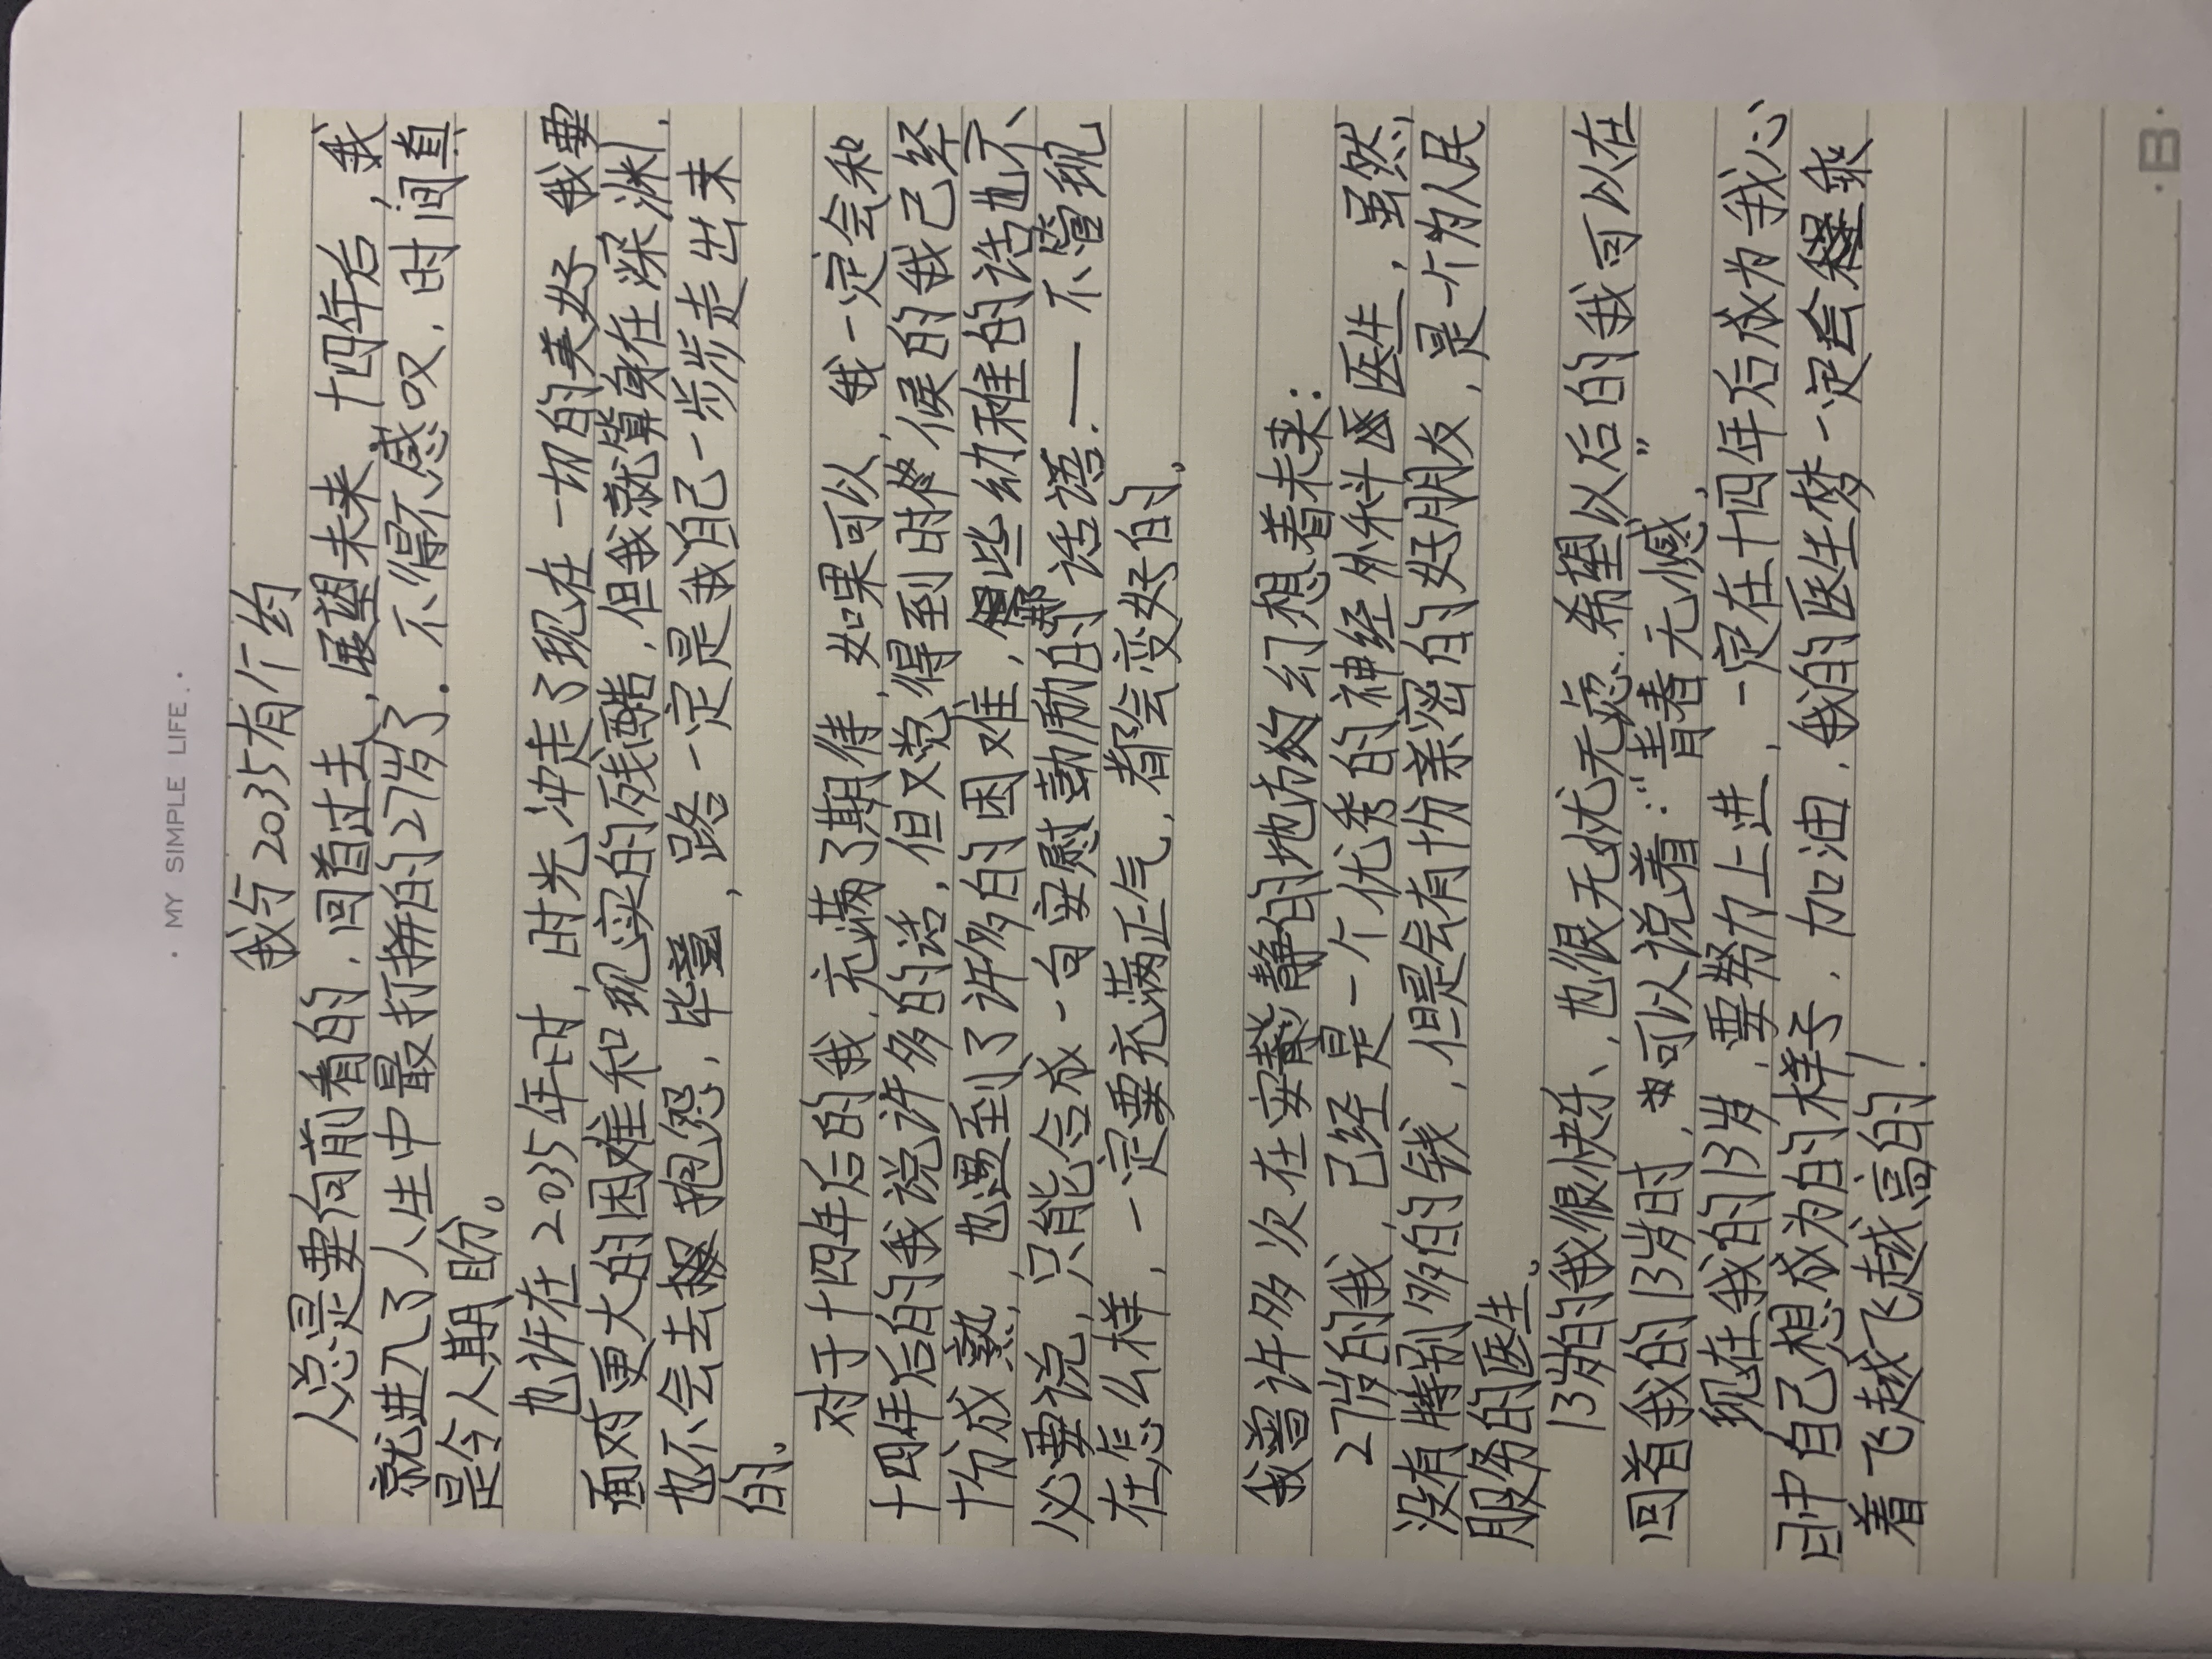 · MY SIMPLE LIFE. ·
我与2035有个约
人总是要向前看的，回首过去，展望未来，十四年后，我
就进入了人生中最打拼的27岁了。不得不感叹，时间真
是令人期盼。
也许在2035年时，时光冲走了现在一切的美好，我要
面对更大的困难和现实的残酷，但我就算身在深渊，
也不会去抱怨，毕竟，路一定是我自己一步步走出来
的。
对于十四年后的我，充满了期待，如果可以，我一定会和
十四年后的我说许多的话，但又觉得到时候的我已经
十分成熟，也遇到了许多的困难，那些幼稚的话也不
必要说，只能合成一句安慰鼓励的话语.——不管现
在怎么样，一定要充满正气，都会变好的。
我曾许多次在安静的地方幻想着未来：
27岁的我，已经是一个优秀的神经外科医生，虽然
没有特别多的钱，但是会有十份亲密的好朋友，是一个为人民
服务的医生。
13岁的我很快乐、也很无忧无虑.希望以后的我可以在
回首我的13岁时，可以说着：“青春无憾”
现在我的13岁，要努力上进，一定在十四年后成为我心
目中自己想成为的样子，加油，我的医生梦一定会乘
着飞越飞越高的！
·B·